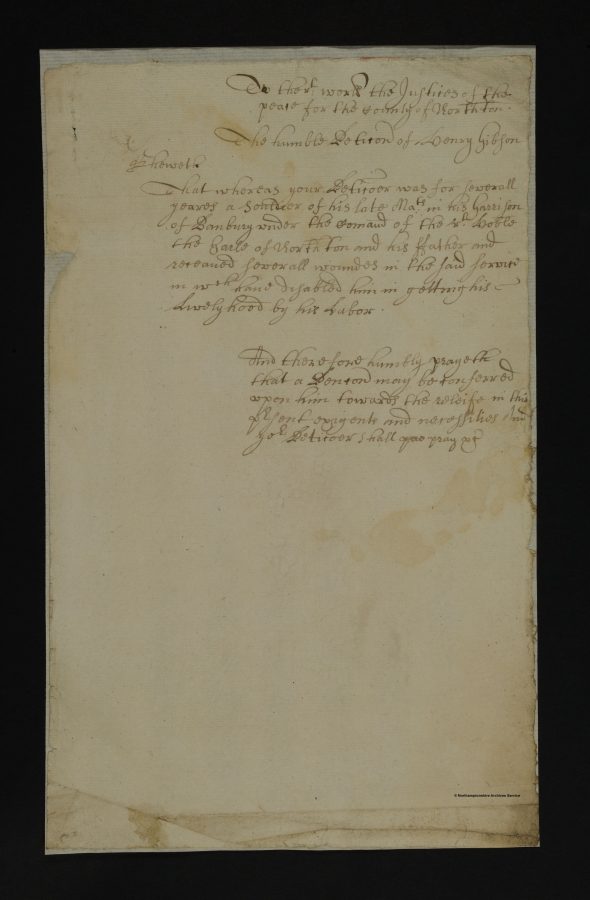 To the rt: worpll the Justices of the
peace for the County of Northton.
The humble Peticon of Henry Gibson
Sheweth
That whereas your Peticoer was for severall
yeares a Souldier of his late Mats in his Garrison
of Banbury under the Comand of the Rt Hoble
the Earle of Northton and his ffather and
receaved severall woundes in the said service
in wch have disabled him in getting his
Livelyhood by his Labor.
And therefore humbly prayeth
that a Pencon may be conferred
upon him towards the releife in this
psent exigente and necessities And
yor Peticoer shall pray &c
© Northamptonshire Archives Service